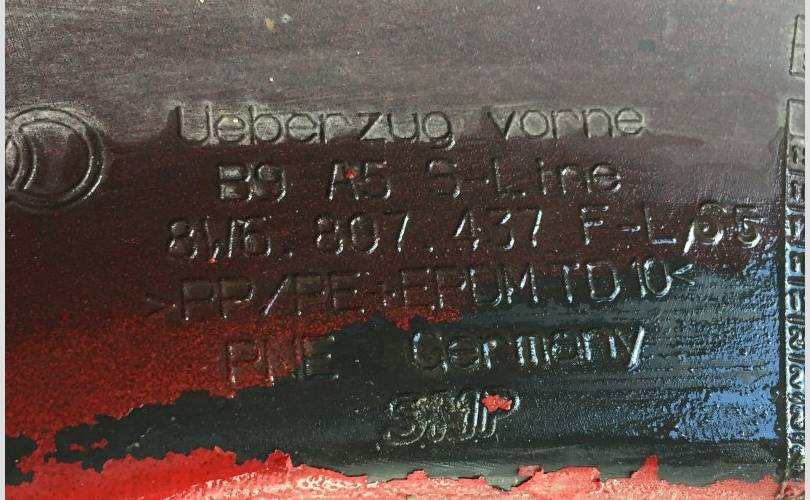 Ueberzug vorne
B9 A5 S-Line
8W6.807.437 F-L/S5
>PP/PE+EPDM TD10<
PNE Germany
SMP